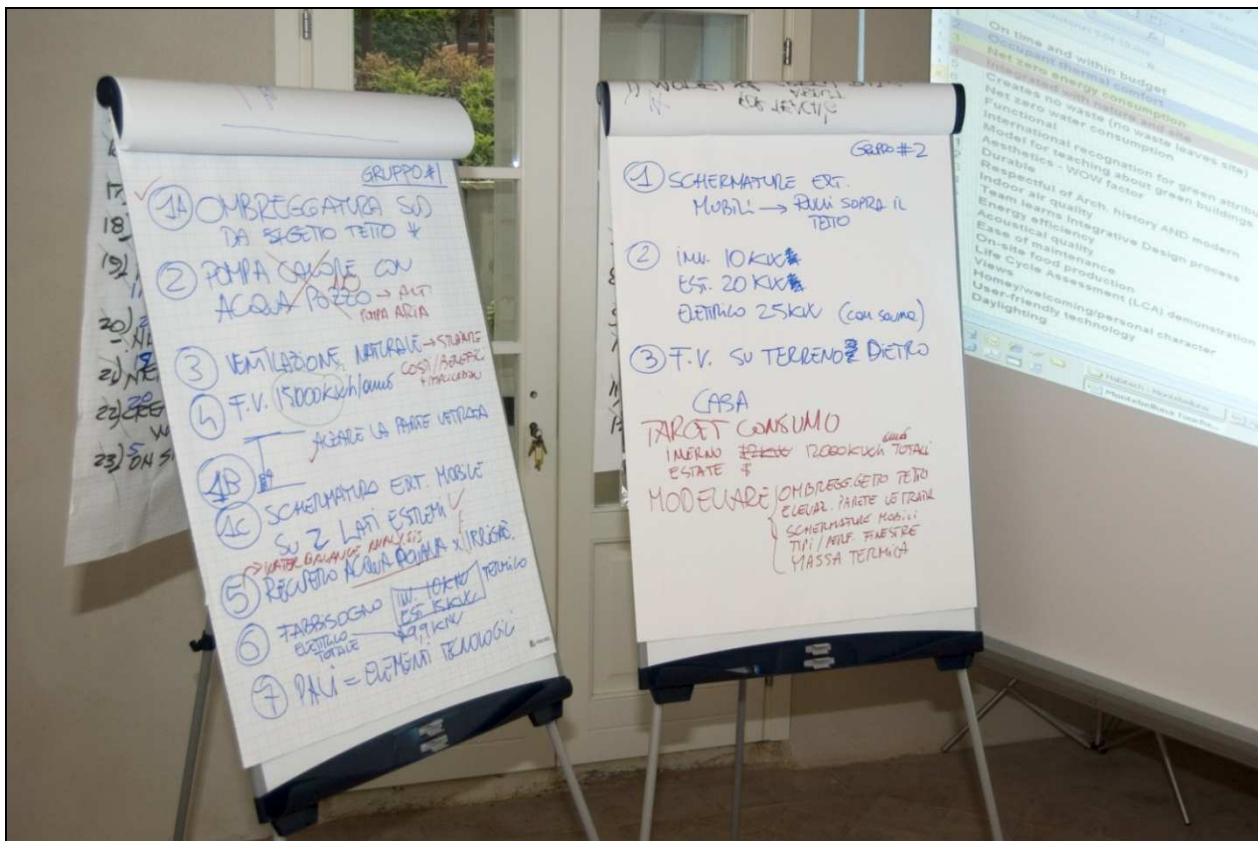 GRUPPO #1
1A OMBREGGATURA SUD
DA SGETTO TETTO *
2 POMPA CALORE CON
ACQUA POZZO → ALT
POMPA ARIA
3 VENTILAZIONE NATURALE → STUDIARE
COSTI/BENEFICI
4 F.V. 15.000 kWh/anno
1B ALZARE LA PARTE VETRATA
1C SCHERMATURA EXT. MOBILE
SU 2 LATI ESTREMI
→ WATER BALANCE ANALYSIS
5 RECUPERO ACQUA PIOVANA X IRRIGAO.
6 FABBISOGNO INV. 10KW TERMICO
EST. 15KW
ELETTRICO 19,9 KW
TOTALE
7 PALI = ELEMENTI TECNOLOGICI
17)
18)
19)
20)
21) NET
22) 20
23) 5 ON SI
GRUPPO #2
1 SCHERMATURE EXT.
MOBILI → PULLI SOPRA IL
TETTO
2 INV. 10 KW
EST. 20 KW
ELETTRICO 25KW (con sauna)
3 F.V. SU TERRENO DIETRO
CASA
TARGET CONSUMO
INVERNO 12000 KWh TOTALI
ESTATE
MODELLARE OMBREGG. GETTO TETTO
ELEVAZ. PARETE VETRATA
SCHERMATURE MOBILI
TIPI/PERF. FINESTRE
MASSA TERMICA
On time and within budget
Occupant thermal comfort
Net zero energy consumption
Integrated with nature and site
Creates no waste (no waste leaves site)
Net zero water consumption
Functional
International recognition for green attrib
Model for teaching about green buildings
Aesthetics - WOW factor
Durable
Respectful of Arch. history AND modern
Indoor air quality
Team learns Integrative Design process
Energy efficiency
Acoustical quality
Ease of maintenance
On-site food production
Life Cycle Assessment (LCA) demonstration
Views
Homey/welcoming/personal character
User-friendly technology
Daylighting
Habitech - Montebelluna